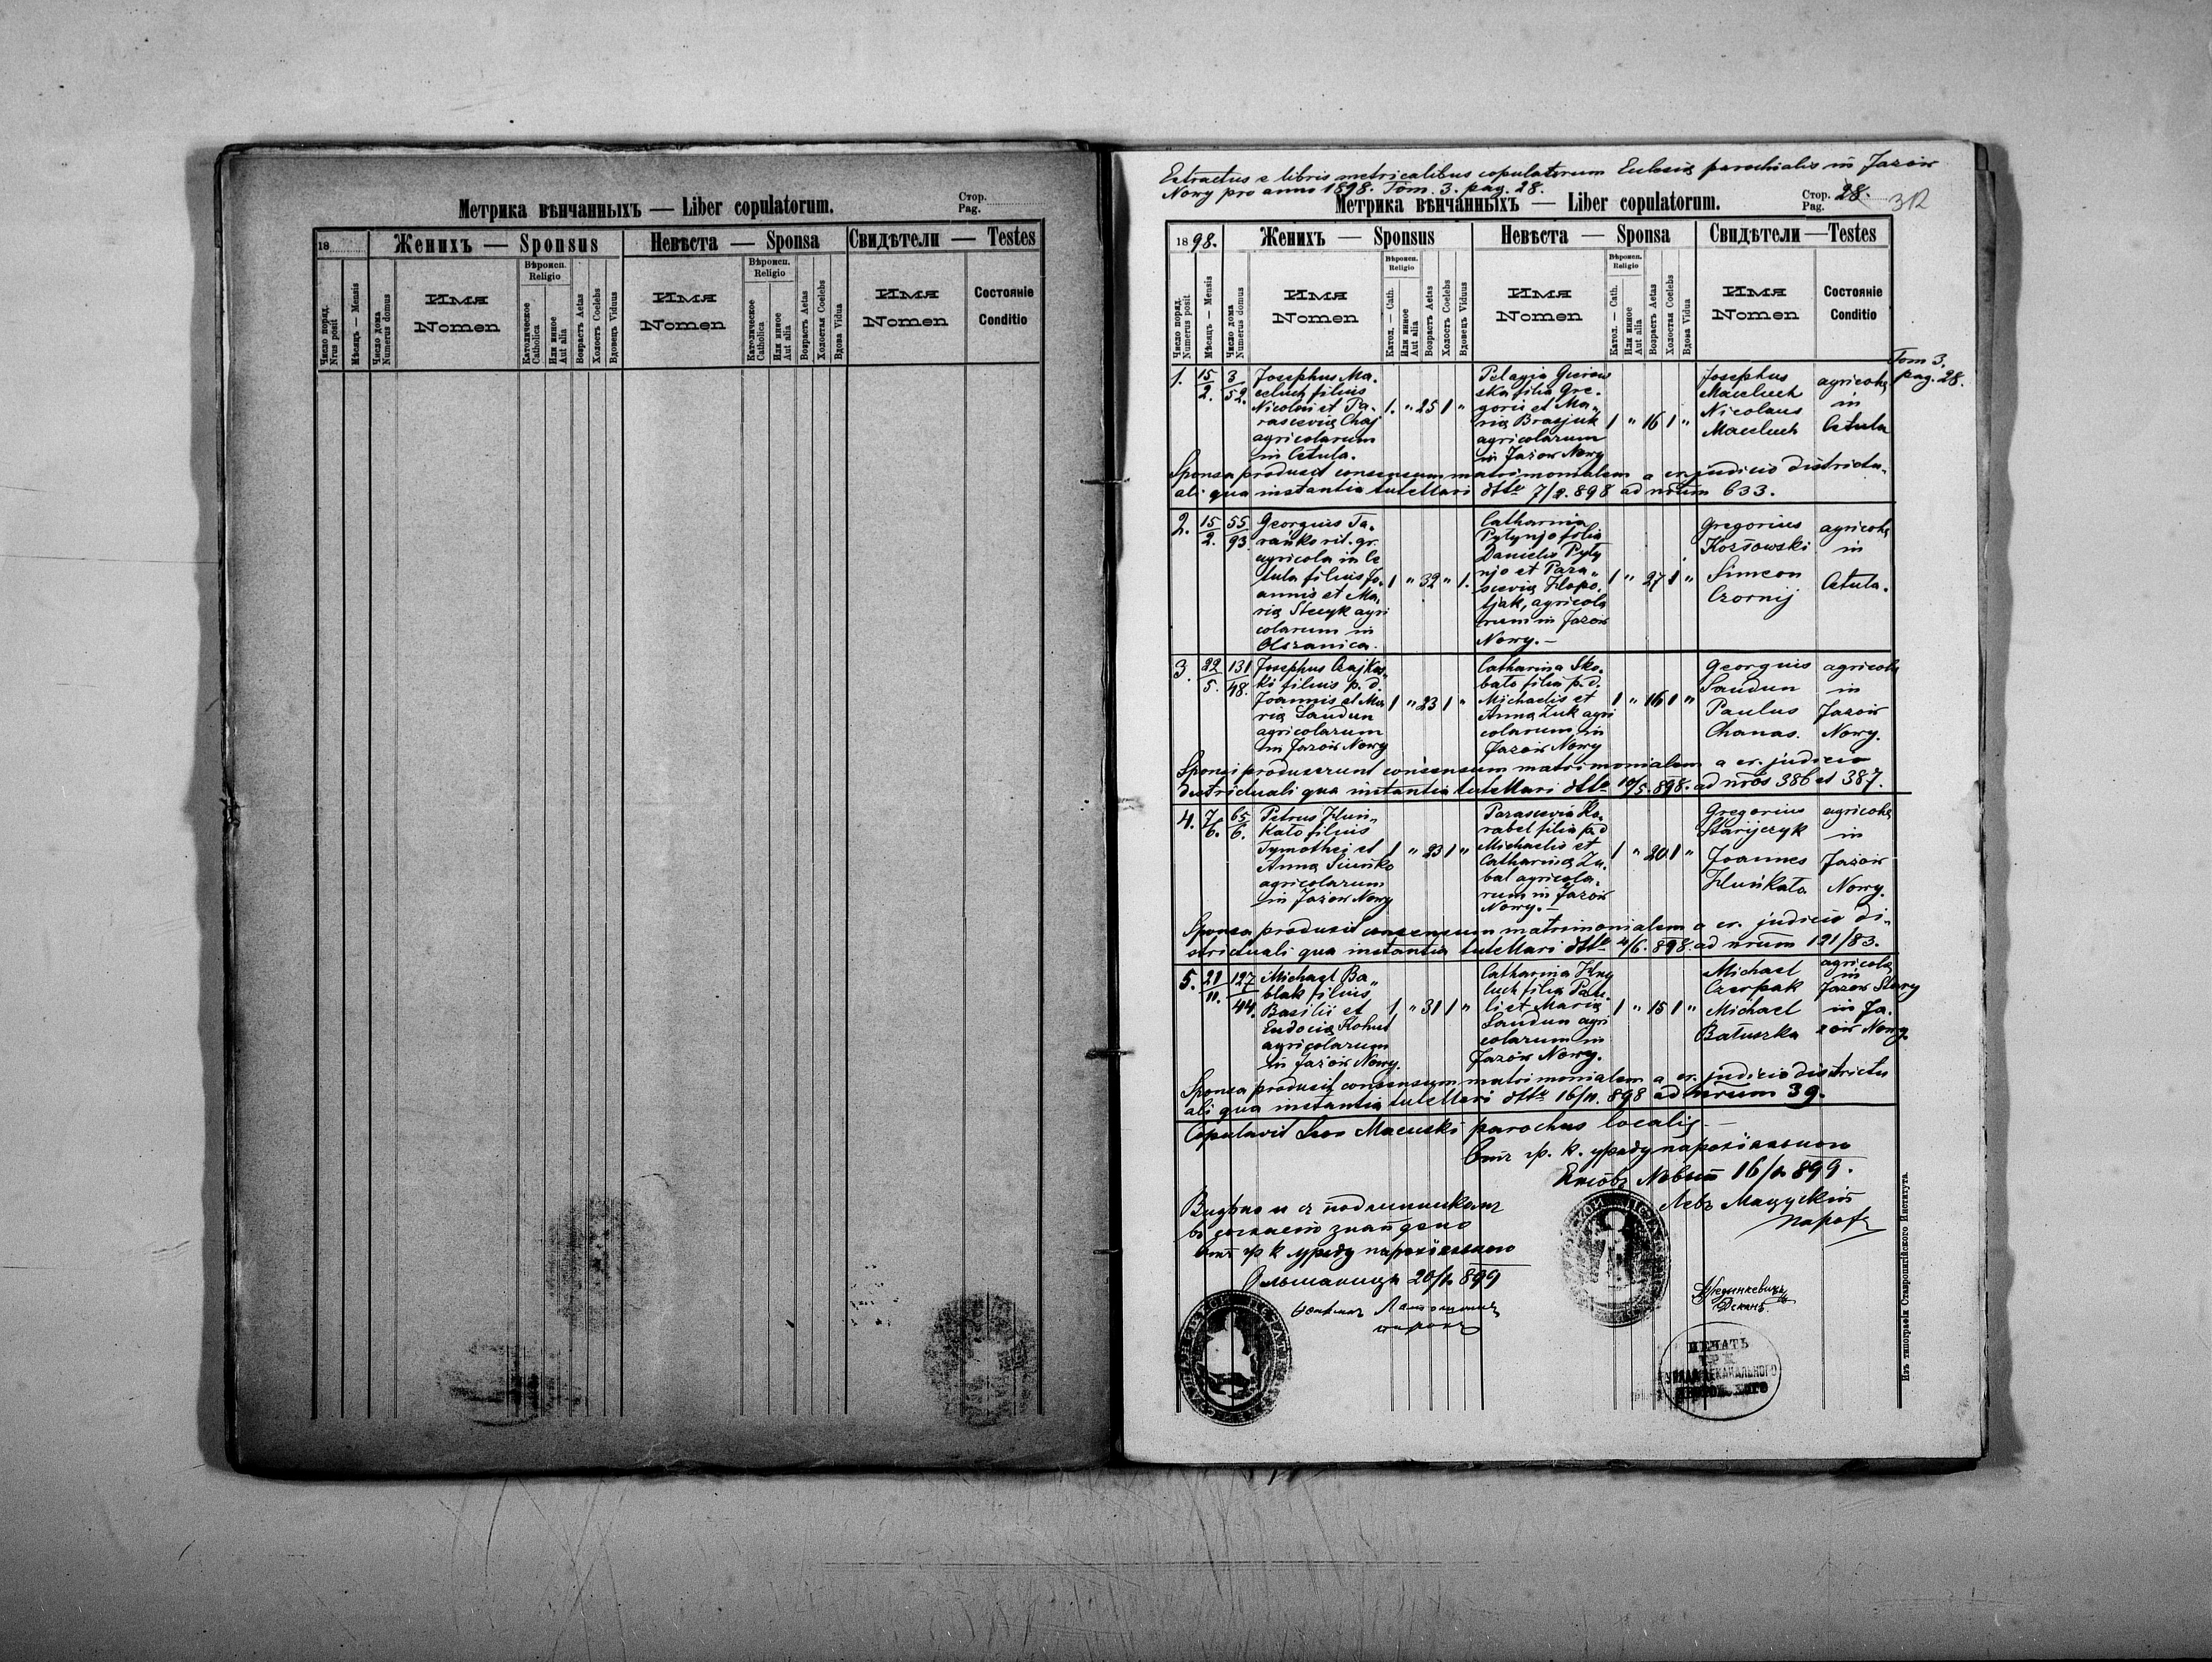 Метрика вѣнчанныхъ — Liber copulatorum.
Стор.
Pag.
18
Женихъ — Sponsus
Невѣста — Sponsa
Свидѣтели — Testes
Число поряд.
Nrus posit
Мѣсяцъ — Mensis
Число дома
Numerus domus
Имя
Nomen
Вѣроисп.
Religio
Католическое
Catholica
Или инное
Aut alia
Возрастъ Aetas
Холостъ Coelebs
Вдовецъ Viduus
Имя
Nomen
Вѣроисп.
Religio
Католическое
Catholica
Или инное
Aut alia
Возрастъ Aetas
Холостая Coelebs
Вдова Vidua
Имя
Nomen
Состояніе
Conditio
Extractus e libris metricalibus copulatorum Eclesiæ parochialis in Jazów
Nowy pro anno 1898. Tom. 3. pag. 28.
Метрика вѣнчанныхъ — Liber copulatorum.
Стор.
Pag. 28.
312
1898.
Женихъ — Sponsus
Невѣста — Sponsa
Свидѣтели — Testes
Число поряд.
Numerus posit.
Мѣсяцъ — Mensis
Число дома
Numerus domus
Имя
Nomen
Вѣроисп.
Religio
Катол. — Cath.
Или инное
Aut alia
Возрастъ Aetas
Холостъ Coelebs
Вдовецъ Viduus
Имя
Nomen
Вѣроисп.
Religio
Катол. — Cath.
Или инное
Aut alia
Возрастъ Aetas
Холостая Coelebs
Вдова Vidua
Имя
Nomen
Состояніе
Conditio
Tom 3.
pag. 28.
1. 15/2. 3/52.
Josephus Ma-
celuch filius
Nicolai et Pa-
rasceviæ Chaj
agricolarum
in Cetula.
1. " 25 1 "
Pelagia
ska filia Gre-
gorii et Ma-
riæ Brasjuk
agricolarum
in Jazów Nowy
1 " 16 1 "
Josephus
Maceluch
Nicolaus
Maceluch
agricolæ
in
Cetula
Sponsa produxit consensum matrimonialem a cr. judicio districtu-
ali qua instantia tutellari dtto 7/2. 898 ad nrum 633.
2. 15/2. 55/93.
Georgius Ta-
rańko rit. gr.
agricola in Ce
tula filius Jo-
annis et Ma-
riæ Stecyk agri
colarum in
Olszanica.
1 " 32 " 1.
Catharina
Pytynjo filia
Danielis Pyty
njo et Para-
sceviæ Hopo-
tjak, agricola
rum in Jazów
Nowy. —
1 " 27 1 "
Gregorius
Kozłowski
Simeon
Czornij
agricolæ
in
Cetula.
3. 22/5. 131/48.
Josephus Czajkow-
ski filius p. d.
Joannis et Ma
riæ Saudun
agricolarum
in Jazów Nowy
1 " 23 1 "
Catharina Sko-
bato filia p. d.
Michaelis et
Annæ Zuk agri
colarum in
Jazów Nowy
1 " 16 1 "
Georgius
Saudun
Paulus
Chanas.
agricolæ
in
Jazów
Nowy.
Sponsi produxerunt consensum matrimonialem a cr. judicio
districtuali qua instantia tutellari dtto 10/5. 898. ad nros 386 et 387.
4. 7/6. 65/6.
Petrus Huń-
kato filius
Tymothei et
Annæ Siuńko
agricolarum
in Jazów Nowy
1 " 23 1 "
Parascevia Ko-
rabel filia p. d
Michaelis et
Catharinæ Zu-
bal agricola-
rum in Jazów
Nowy. —
1 " 20 1 "
Gregorius
Starijczyk
Joannes
Huńkato
agricolæ
in
Jazów
Nowy.
Sponsa produxit consensum matrimonialem a cr. judicio di-
strictuali qua instantia tutellari dtto 4/6. 898. ad nrum 191/83.
5. 21/11. 127/44.
Michael Ba-
blak filius
Basilii et
Eudociæ Kohut
agricolarum
in Jazów Nowy.
1. " 31 1 "
Catharina Hny
luch filia Pau-
li et Mariæ
Saudun agri
colarum in
Jazów Nowy.
1 " 15 1 "
Michael
Czerpak
Michael
Batuszka
agricolæ
in
Jazów Stary
in Ja-
zów Nowy.
Sponsa produxit consensum matrimonialem a cr. judicio districtu
ali qua instantia tutellari dtto 16/11. 898 ad nrum 39.
Copulavit Leo Macuski parochus localis. —
Отъ гр. к. уряду парохіального
Язовъ Новый 16/1 899.
Левъ Мацускій
парох
Видѣно и съ подлинникомъ
Отъ гр к уряду парохіального
Ольшаница 20/1 899
Деканъ.
ПЕЧАТЬ
ГР. К.
УРЯДА ДЕКАНАЛЬНОГО
Изъ типографіи Ставропигійского Института.